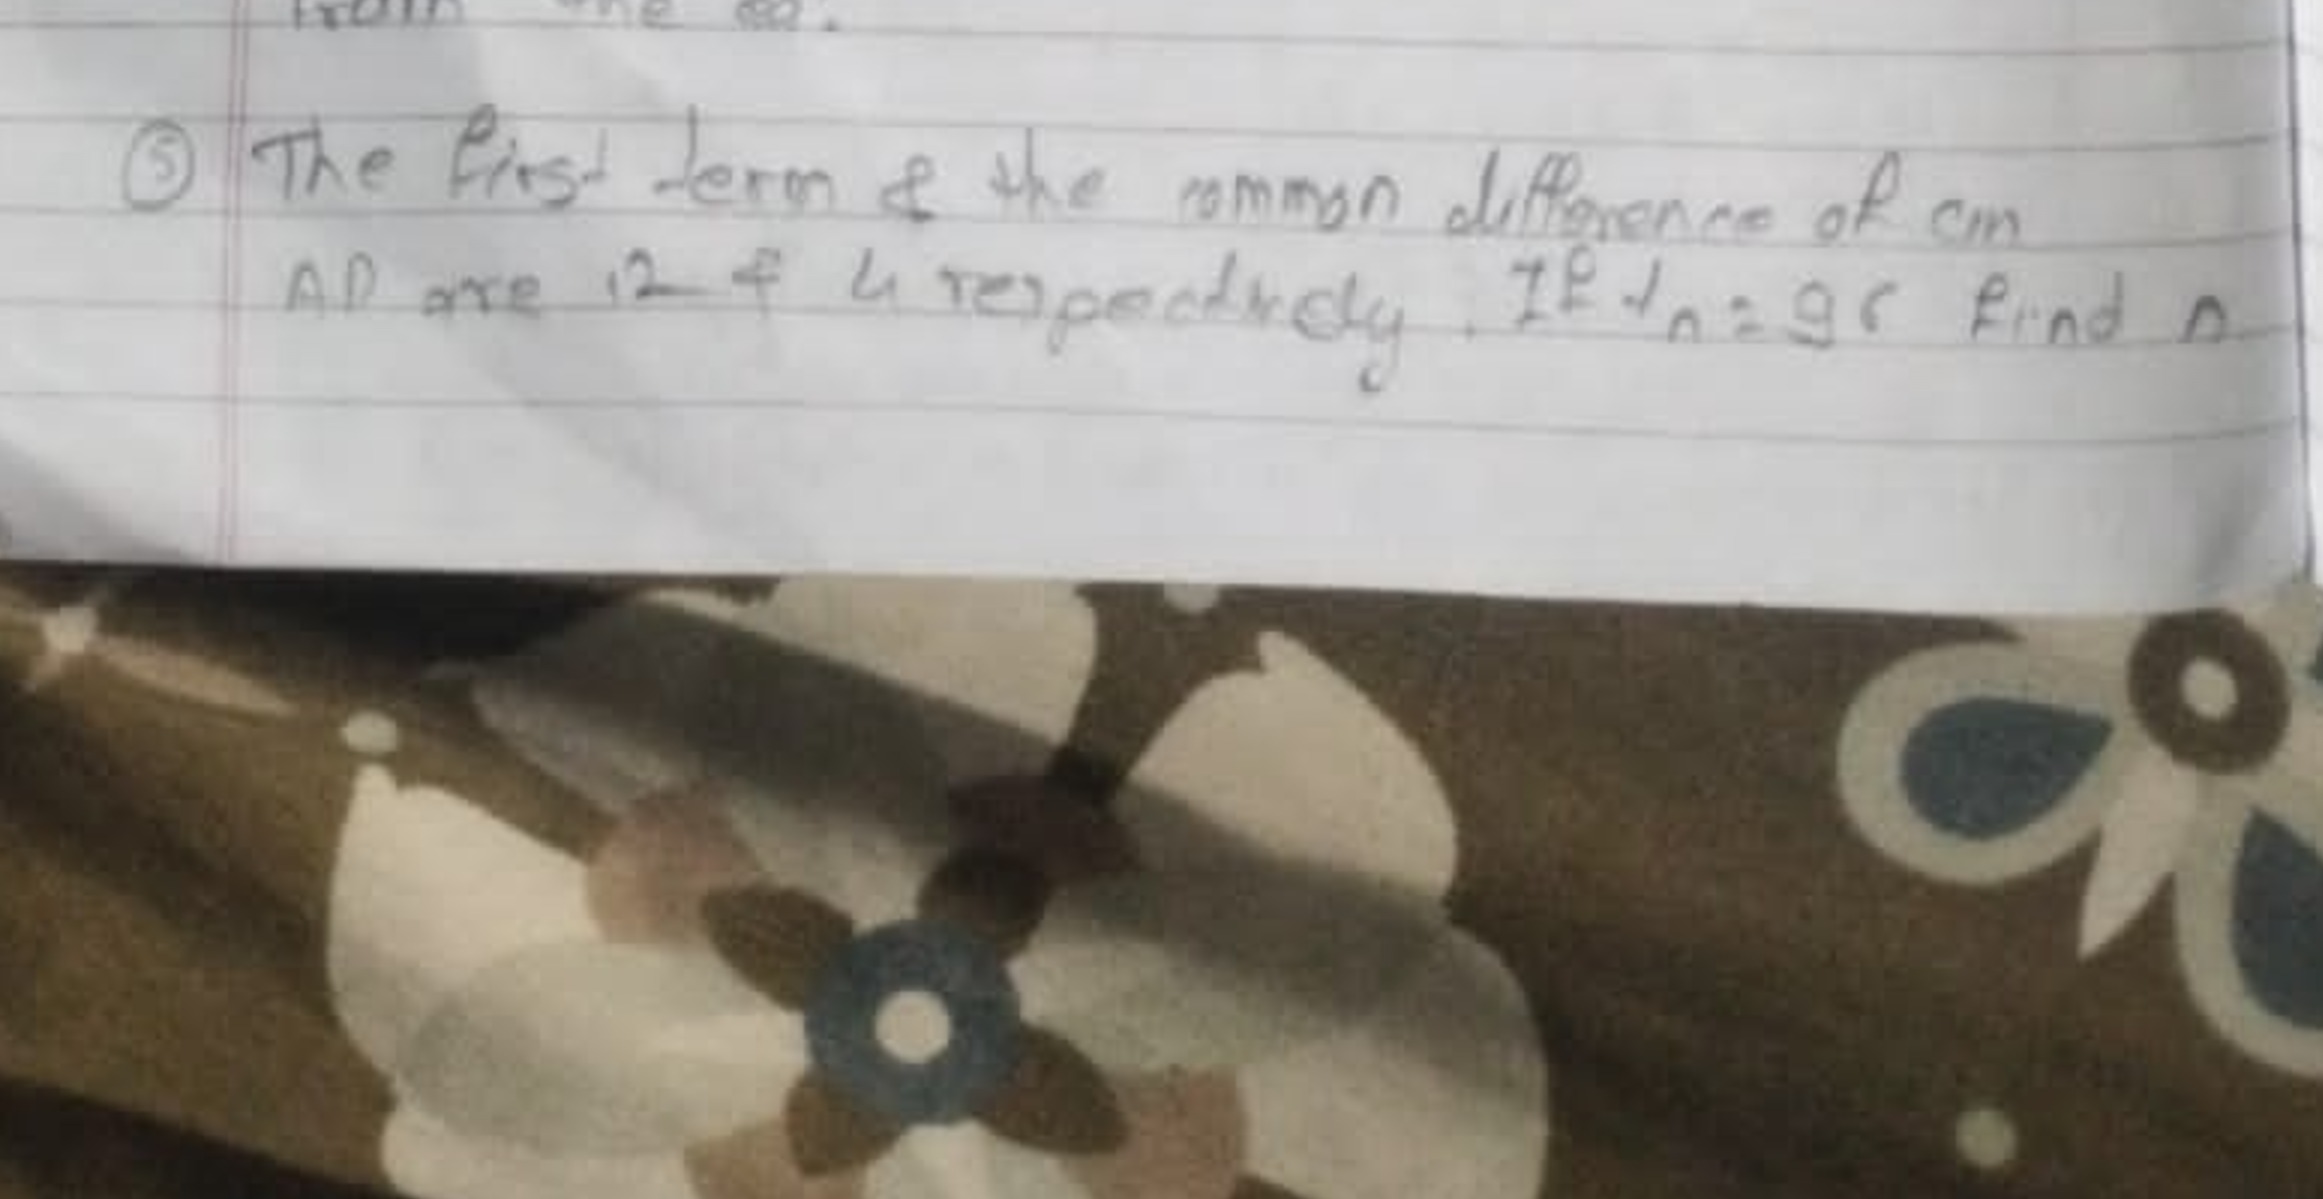 the eq.
⑤ The first term & the common difference of an
AP are 12 & 4 respectively. If tn = 96 find n